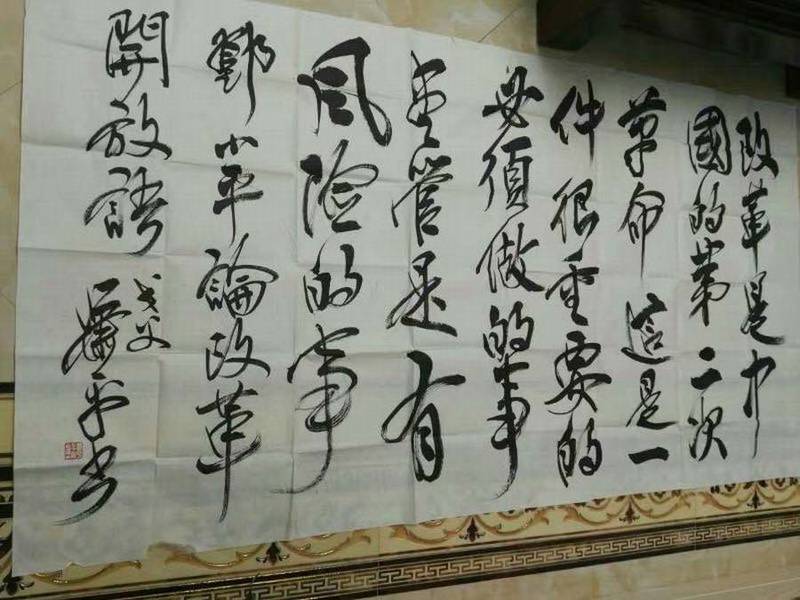 改革是中
國的第二次
革命這是一
件很重要的
必須做的事
尽管是有
风险的事
鄧小平論改革
開放語
平书